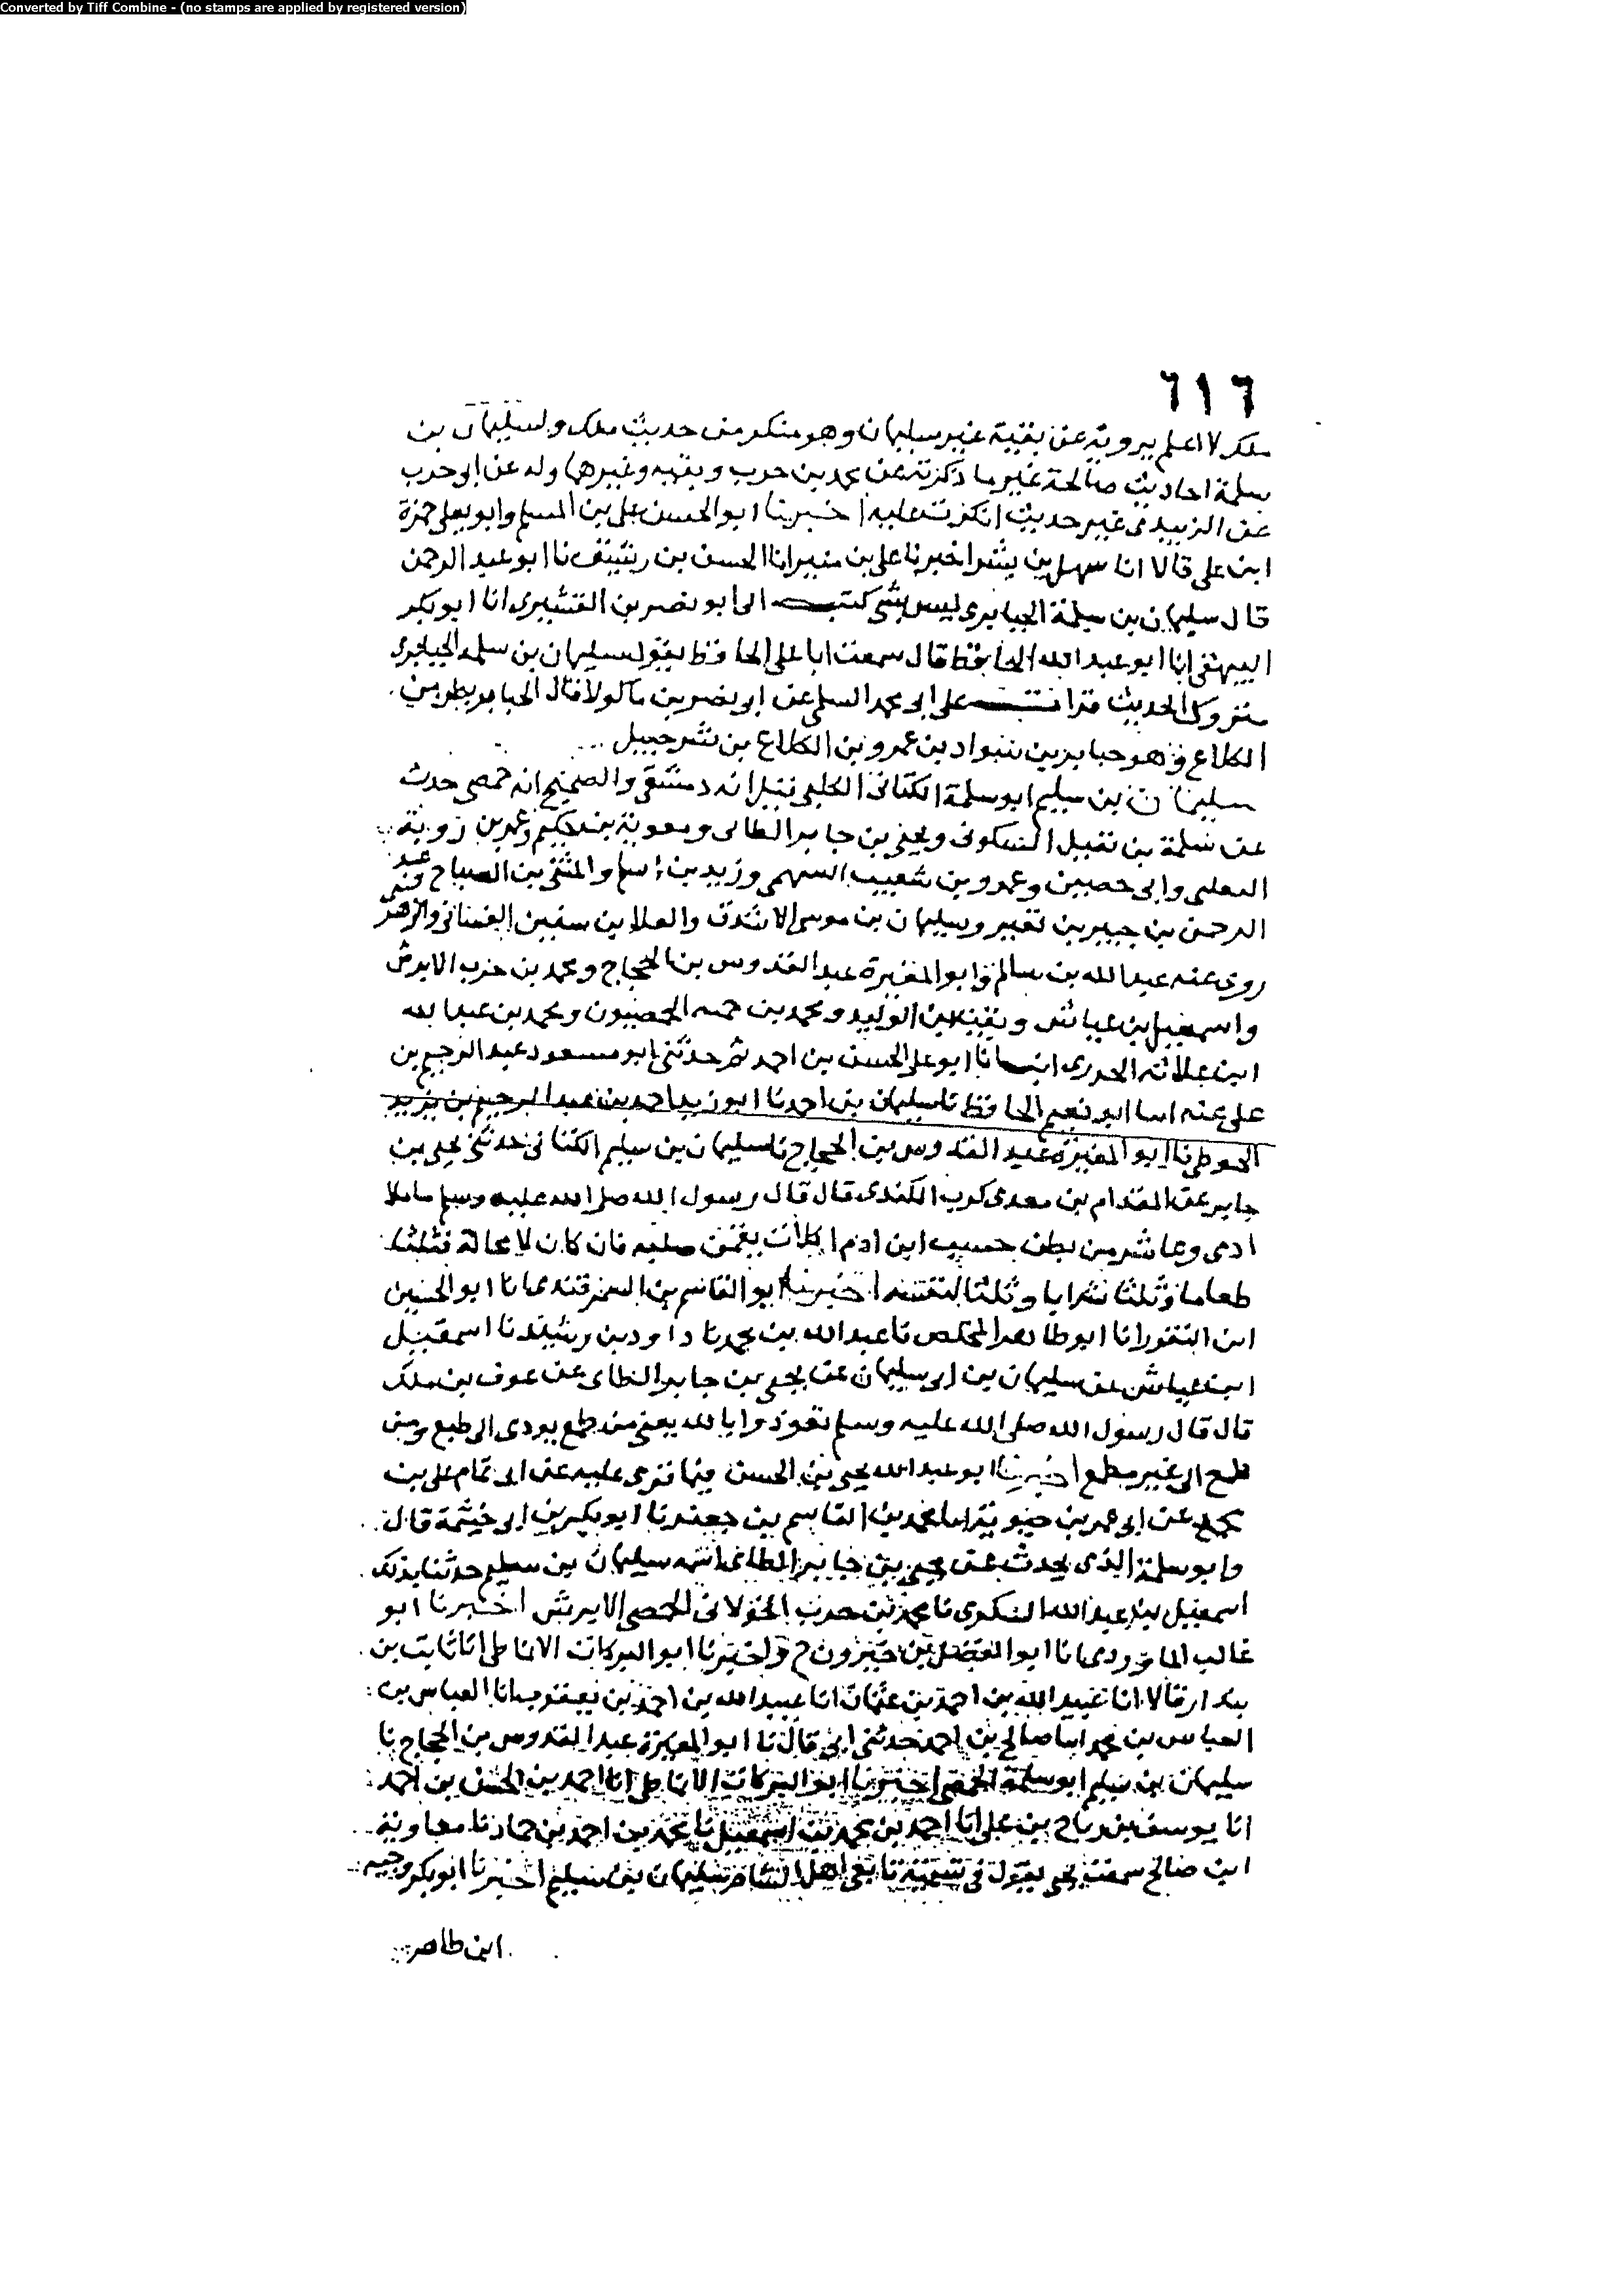 Converted by Tiff Combine - (no stamps are applied by registered version)
٦١٦
ملك لا اعلم يرويه عن بقية غير سليمان وهو منكر من حديث ملك ولسليمان بن
سلمة احاديث صالحة غير ما ذكرته عن محمد بن حرب وبقيه وغيرها وله عن ابن حرب
عن الزبيدي غير حديث انكرت عليه اخبرنا ابو الحسن علي بن المسلم وابو يعلى حمزة
ابن علي قالا انا سهل بن بشر اخبرنا علي بن منير انا الحسن بن رشيق نا ابو عبد الرحمن
قال سليمان بن سلمة الخبايري ليس بشي كتب الى ابو نصر بن القشيري انا ابو بكر
البيهقي انا ابو عبد الله الحافظ قال سمعت ابا علي الحافظ يقول سليمان بن سلمه الخبايري
متروك الحديث قرات على ابي محمد السلمي عن ابي نصر بن ماكولا قال الخباير بطن من
الكلاع وهو خباير بن سواد بن عمرو بن الكلاع بن شرحبيل
سليمان بن سليم ابو سلمة الكناني الكلبي قيل انه دمشقي والصحيح انه حمصي حدث
عن سلمة بن نفيل السكوني ويحيى بن جابر الطائي ومعوية بن حكيم وعمر بن روبة
التغلبي وابي حصين وعمرو بن شعيب السهمي وزيد بن اسلم والمثنى بن الصباح وعبد
الرحمن بن جبير بن نفير وسليمان بن موسى الاشدق والعلا بن سفين الغساني والزهري
روى عنه عبد الله بن سالم وابو المغيرة عبد القدوس بن الحجاج ومحمد بن حرب الابرش
واسمعيل بن عياش وبقية بن الوليد ومحمد بن حمير الحمصيون ومحمد بن عبد الله
ابن علاثه الحرري انبانا ابو علي الحسن بن احمد ثم حدثني ابو مسعود عبد الرحيم بن
علي عنه انا ابو نعيم الحافظ نا سليمان بن احمد نا ابو زيد احمد بن عبد الرحيم بن يزيد
الحوطي نا ابو المغيرة عبد القدوس بن الحجاج نا سليمان بن سليم الكناني حدثني يحيى بن
جابر عن المقدام بن معدي كرب الكندي قال قال رسول الله صلى الله عليه وسلم ما ملا
ادمي وعا شر من بطن حسب ابن ادم اكلات يقمن صلبه فان كان لا محالة فثلثا
طعاما وثلثا شرابا وثلثا لنفسه اخبرنا ابو القاسم بن السمرقندي انا ابو الحسين
ابن النقور انا ابو طاهر المخلص نا عبد الله بن محمد نا داود بن رشيد نا اسمعيل
ابن عياش عن سليمان بن ابي سليمان عن يحيى بن جابر الطائي عن عوف بن ملك
قال قال رسول الله صلى الله عليه وسلم تعوذوا بالله يعني من طمع يودي الى طبع ومن
طمع الى غير مطمع اخبرنا ابو عبد الله يحيى بن الحسن فيما قرى عليه عن ابي تمام علي بن
محمد عن ابي عمر بن حيوية انا محمد بن القاسم بن جعفر نا ابو بكر بن ابي خيثمة قال
وابو سلمة الذي يحدث عن يحيى بن جابر الطائي اسمه سليمان بن سليم حدثنا بذلك
اسمعيل بن عبد الله السكري نا محمد بن حرب الخولاني الحمصي الابرش اخبرنا ابو
غالب الماوردي انا ابو الفضل بن خيرون ح واخبرنا ابو البركات الانماطي انا ثابت بن
بندار قالا انا عبيد الله بن احمد بن عثمان انا عبيد الله بن احمد بن يعقوب انا العباس بن
العباس بن محمد انا صالح بن احمد حدثني ابي قال نا ابو المغيرة عبد القدوس بن الحجاج نا
سليمان بن سليم ابو سلمة الحمصي اخبرنا ابو البركات الانماطي انا احمد بن الحسن بن احمد
انا يوسف بن رباح بن علي انا احمد بن محمد بن اسمعيل نا محمد بن احمد بن حماد نا معاوية
ابن صالح سمعت يحيى يقول في تسمية تابعي اهل الشام سليمان بن سليم اخبرنا ابو بكر وجيه
ابن طاهر